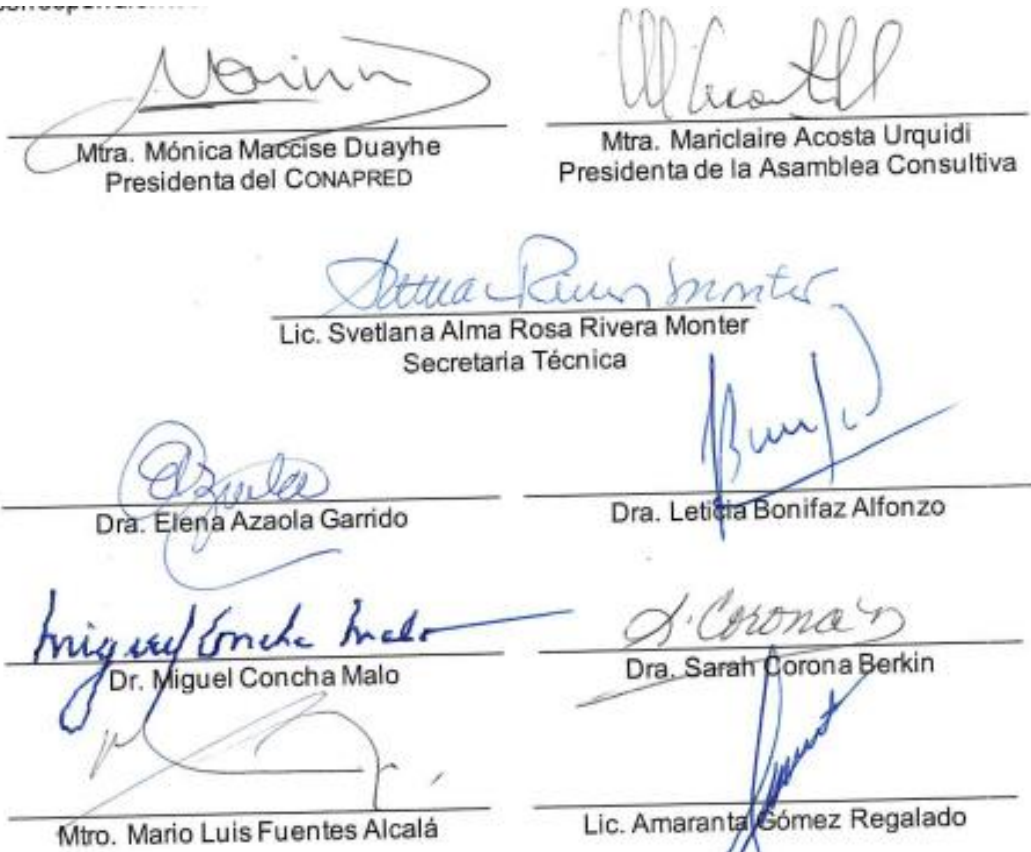 Mtra. Mónica Maccise Duayhe
Presidenta del CONAPRED
Mtra. Mariclaire Acosta Urquidi
Presidenta de la Asamblea Consultiva
Lic. Svetlana Alma Rosa Rivera Monter
Secretaria Técnica
Dra. Elena Azaola Garrido
Dra. Leticia Bonifaz Alfonzo
Miguel Concha Malo
Dr. Miguel Concha Malo
S. Corona
Dra. Sarah Corona Berkin
Mtro. Mario Luis Fuentes Alcalá
Lic. Amaranta Gómez Regalado